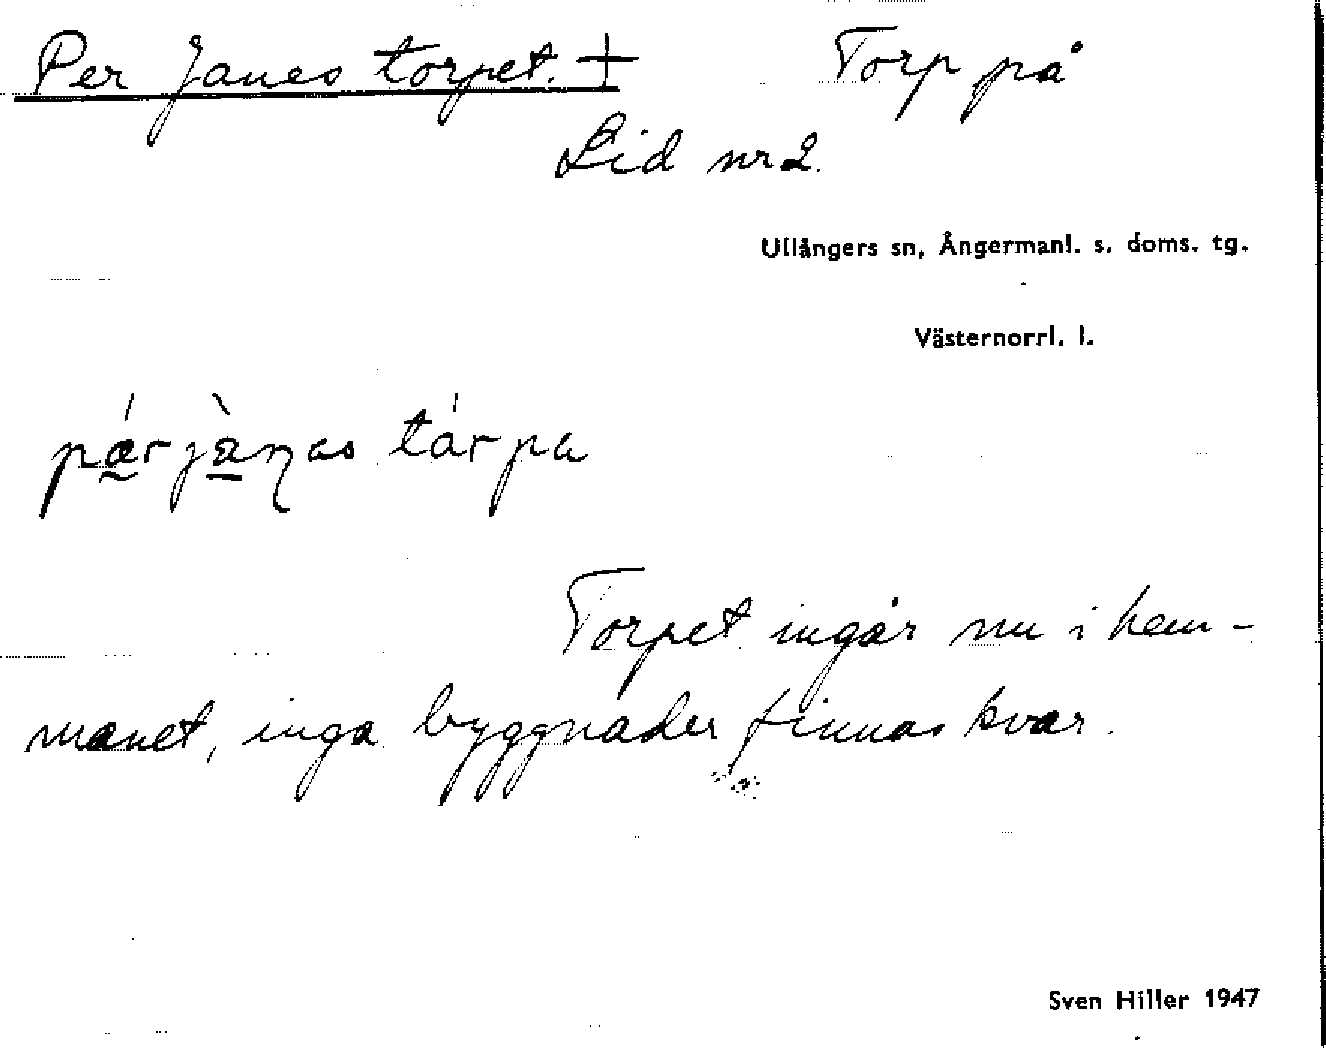 Per Janes torpet. + Torp på
Lid nr 2.
Ullångers sn, Ångermanl. s. doms. tg.
Västernorrl. l.
Torpet ingår nu i hem-
manet, inga byggnader finnas kvar.
Sven Hiller 1947